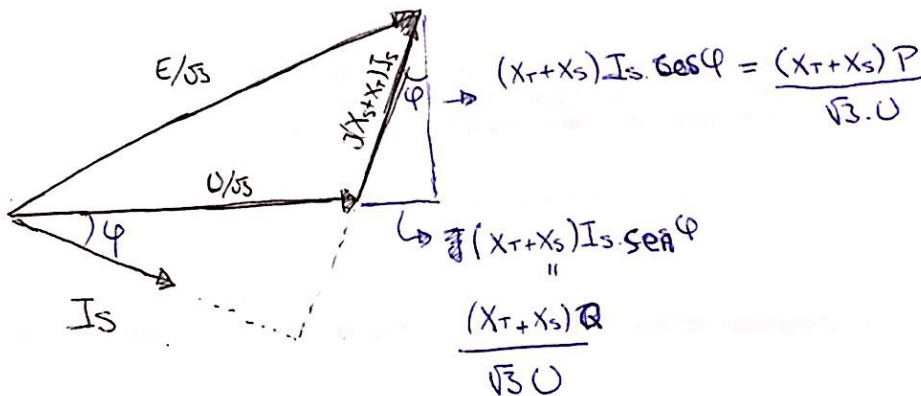 E/√3
j(Xs+XT)Is
φ
→ (XT+Xs) Is. cosφ = (XT+Xs) P / √3.U
U/√3
φ
Is
(XT+Xs) Is.senφ
"
(XT+Xs) Q
√3 U